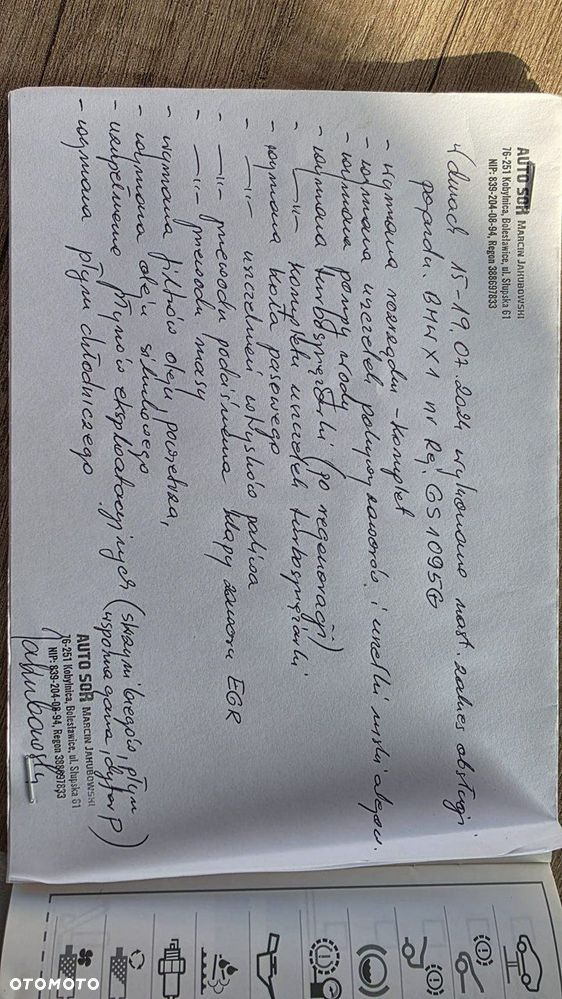 AUTO SOR MARCIN JAKUBOWSKI
76-251 Kobylnica, Bolesławice, ul. Słupska 61
NIP: 839-204-08-94, Regon 388697833
W dniach 15-19.07.2024 wykonano nast. zakres obsługi
pojazdu. BMW X1 nr Rej. GS1095G
- wymiana rozrządu - komplet
- wymiana uszczelek pokrywy zaworów i uszczelki miski olejow.
- wymiana pompy wody
- wymiana turbosprężarki (po regeneracji)
- —"— kompletu uszczelek turbosprężarki
- wymiana koła pasowego
- —"— uszczelnień wtrysków paliwa
- —"— przewodu podciśnienia klapy zaworu EGR
- —"— przewodu masy
- wymiana filtrów oleju, powietrza,
- wymiana oleju silnikowego
- uzupełnienie płynów eksploatacyjnych (skrzyni biegów, płyn
wspomagania, dyfer P)
- wymiana płynu chłodniczego
AUTO SOR MARCIN JAKUBOWSKI
76-251 Kobylnica, Bolesławice, ul. Słupska 61
NIP: 839-204-08-94, Regon 388697833
Jakubowski
OTOMOTO